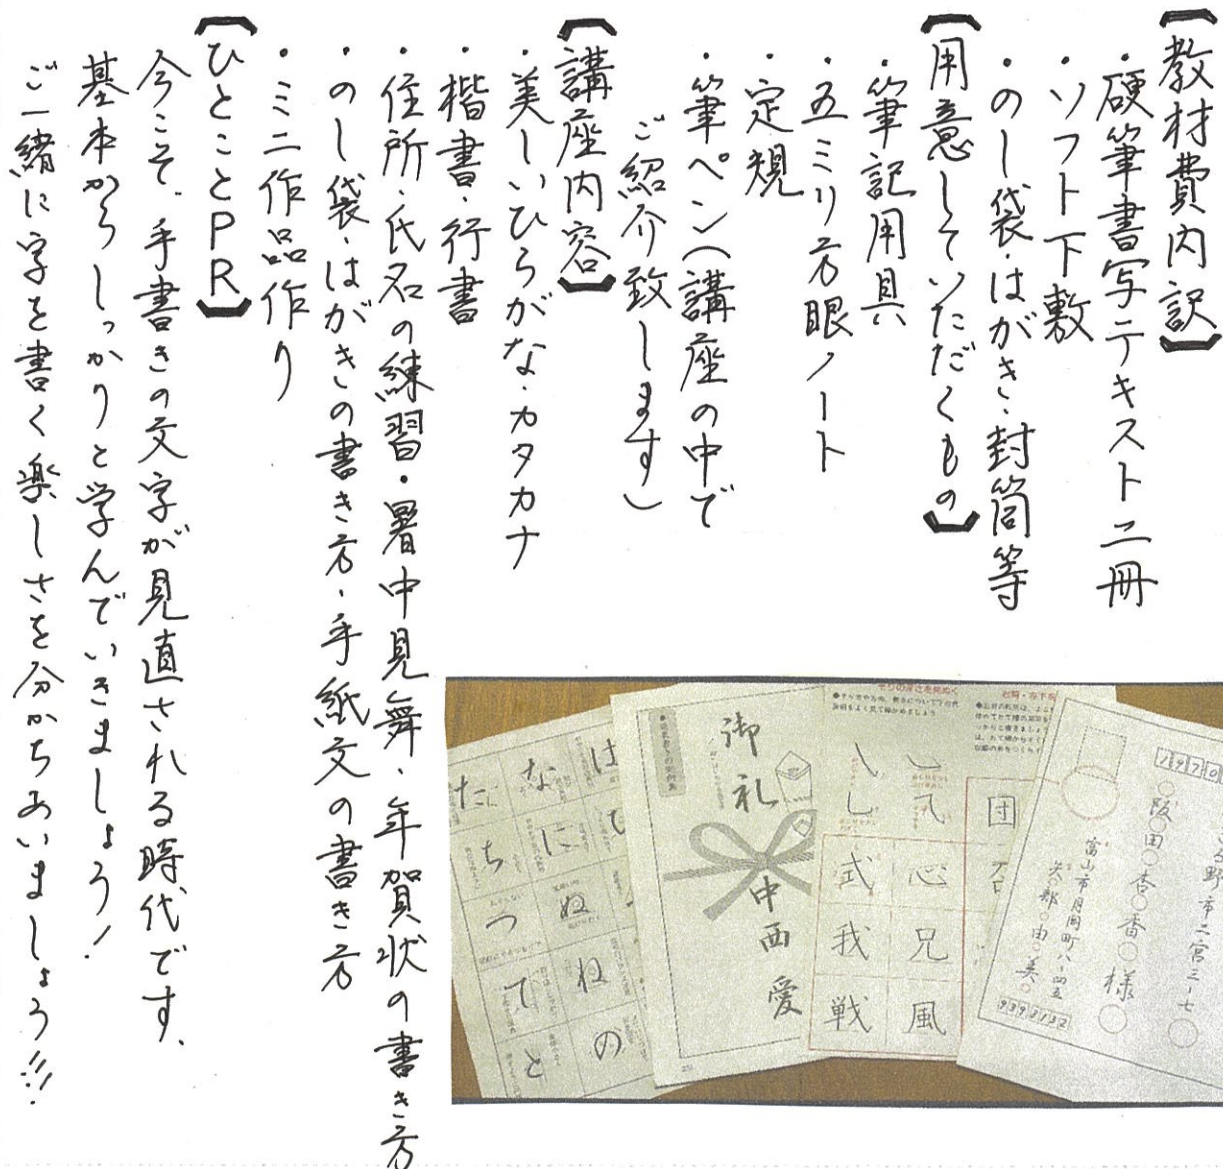 【教材費内訳】
・硬筆書写テキスト二冊
・ソフト下敷
・のし袋・はがき・封筒等
【用意していただくもの】
・筆記用具
・五ミリ方眼ノート
・定規
・筆ペン(講座の中で
ご紹介致します)
【講座内容】
・美しいひらがな・カタカナ
・楷書・行書
・住所・氏名の練習・暑中見舞・年賀状の書き方
・のし袋・はがきの書き方・手紙文の書き方
・ミニ作品作り
【ひとことPR】
今こそ、手書きの文字が見直される時代です、
基本からしっかりと学んでいきましょう!
ご一緒に字を書く楽しさを分かちあいましょう!!!
○阪○田○杏○香○様○
富山市月岡町八-四五
9398132
団
心兄風
式我戦
御礼
中西 愛
は
なにぬねの
たちつてと